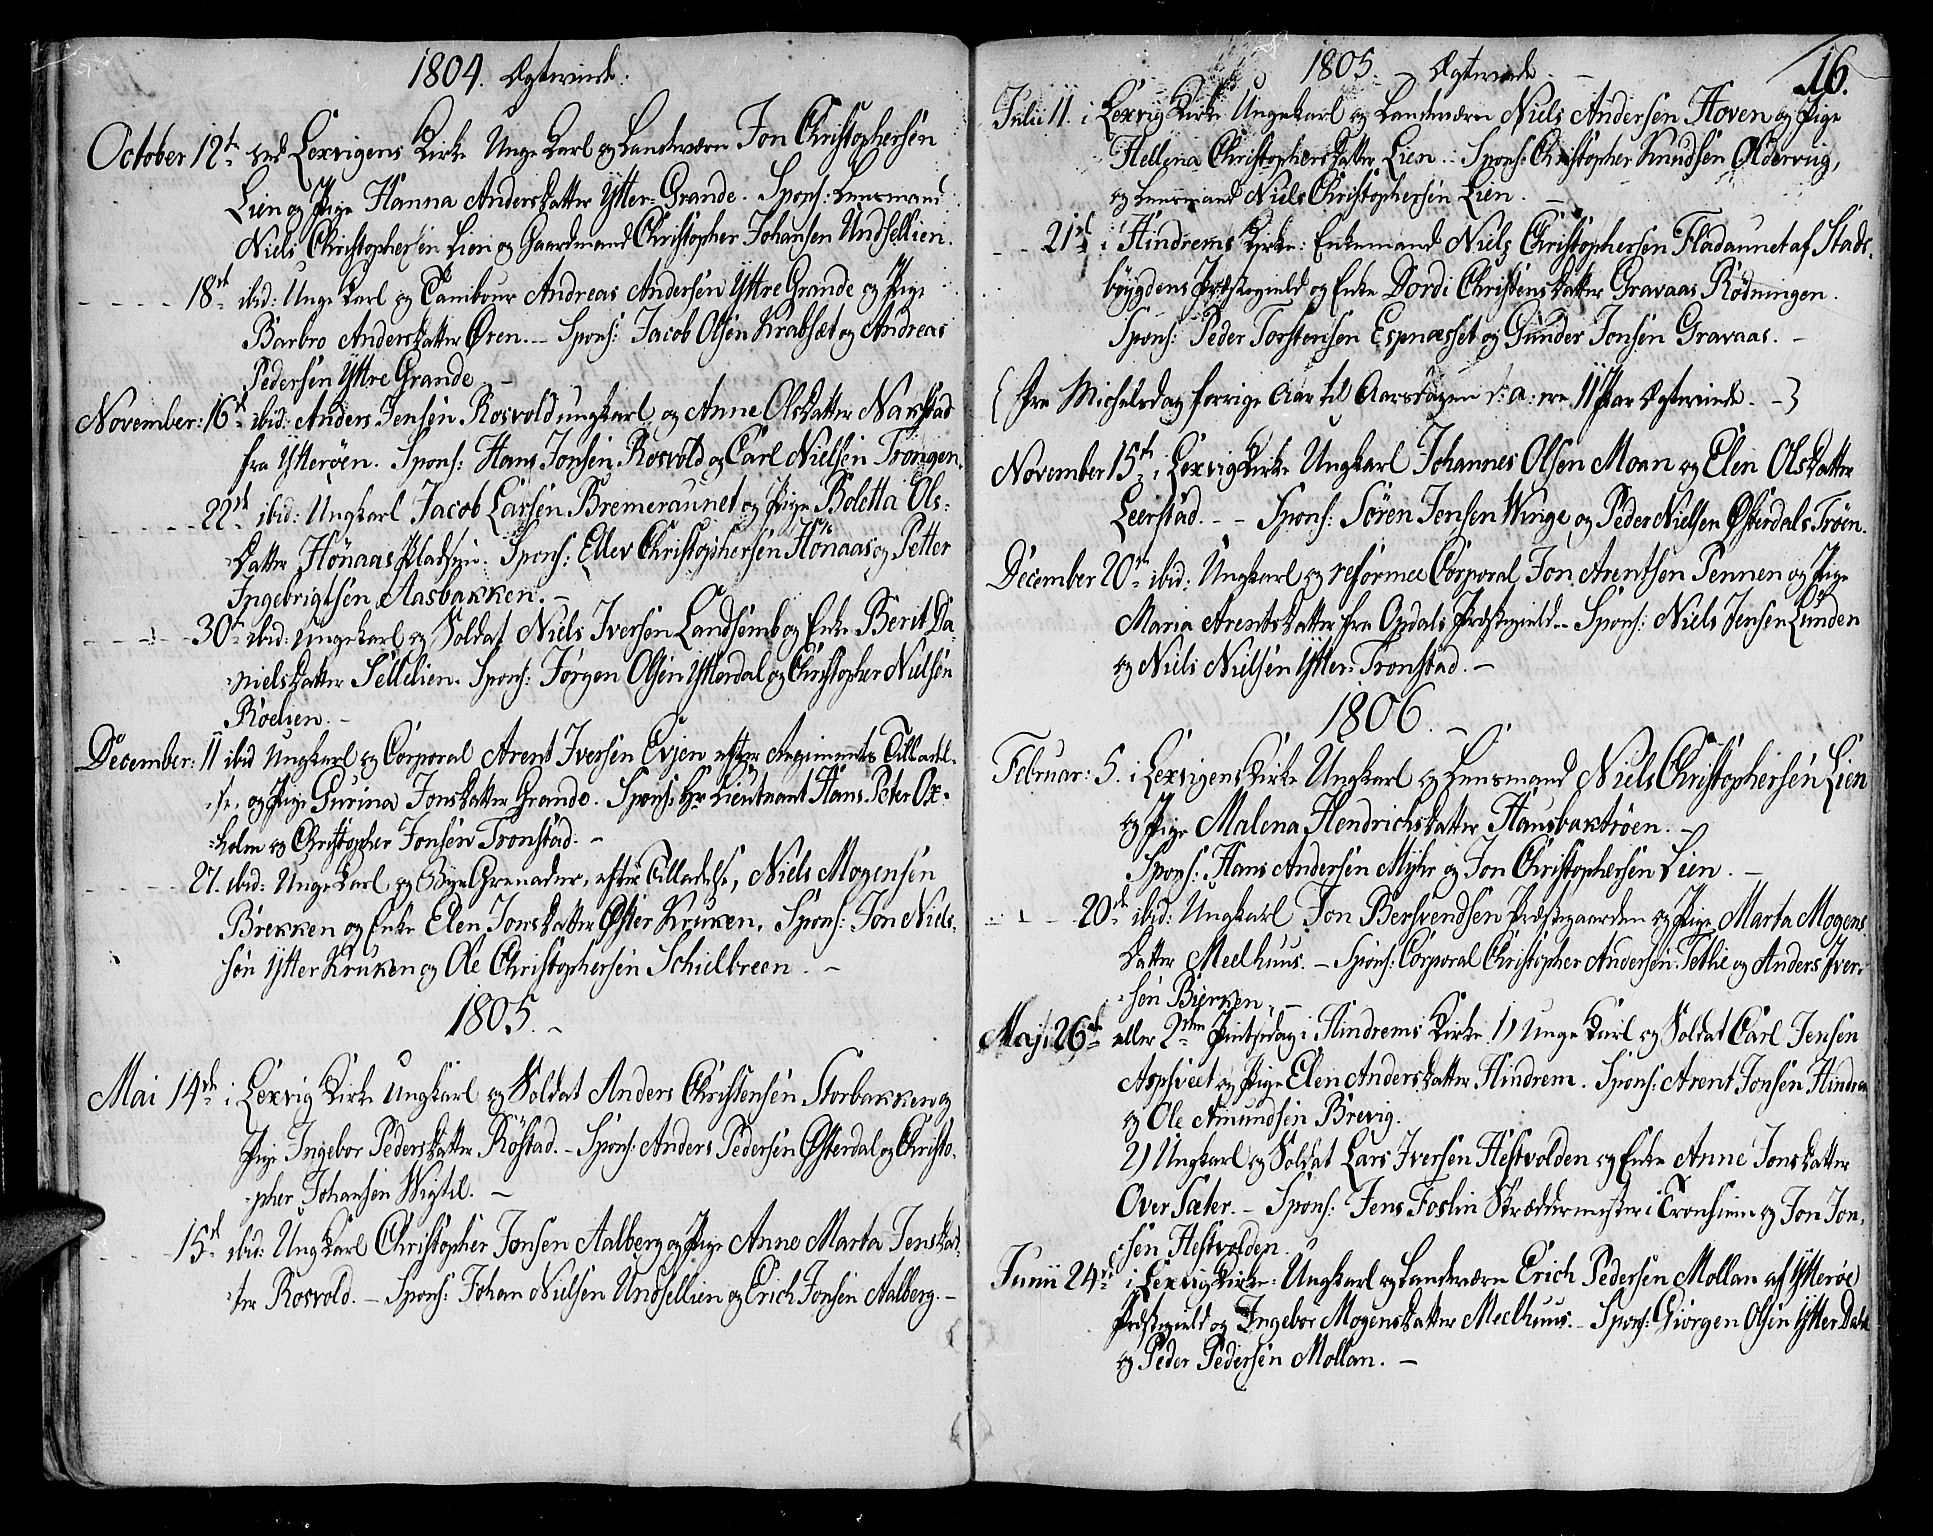 1804. Ægteviede:
October 12te ved Lexvigens Kirke Unge Karl og Landværn Jon Christophersen
Lien og Pige Hanna Andersdatter Ytter-Grande. Spons: Lensmand
Niels Christophersen Lien og Gaardmand Christopher Johansen Undsellien.
18de ibid: Unge Karl og Tambour Andreas Andersen Yttre Grande og Pige
Barbro Andersdatter Øren. - Spons: Jacob Olsen Krabsæt og Andreas
Pedersen Yttre Grande
November: 16de ibid: Anders Jensen Rosvold ungkarl og Anne Olsdatter Naustad
fra Ytterøen. Spons: Hans Jonsen Rosvold og Carl Nielsen Trongen.
22de ibid: Ungkarl Jacob Larsen Bremeraunet og Pige Boletta Ols-
datter Hönaas Pladsen. Spons: Ellev Christophersen Hönaas og Petter
Ingebrigtsen Aasbakken. -
30te ibid: Ungekarl og Soldat Niels Iversen Landsemb og Enke Berit Da-
nielsdatter Sellelien. Spons: Jørgen Olsen Ytterdal og Christopher Nielsen
Röelien. -
December: 11 ibid Ungkarl og Corporal Arent Iversen Evjen efter Regiments Tilladel-
se, og Pige Gurina Jonsdatter Grande. Spons: Hr Lieutnant Hans Peter Ox-
holm og Christopher Jonsen Tronstad. -
27. ibid: Unge Karl og Grenader, efter Tilladelse, Niels Mogensen
Brekken og Enke Elen Jonsdatter Øster Kruken. Spons: Jon Niels-
sön Ytter Kruken og Ole Christophersen Schielbreen. -
1805. -
Mai 14de i Lexvig Kirke Ungkarl og Soldat Anders Christensen Storbakken og
Pige Ingebor Pedersdatter Röstad. - Spons: Anders Pedersen Østerdal og Christo-
pher Johansen Wigtil. -
15de ibid: Ungkarl Christopher Jonsen Aalberg og Pige Anne Marta Jensdat-
ter Rosvold. - Spons: Johan Nielsen Undsellien og Erich Jonsen Aalberg. -
1805. - Ægteviede - 16.
Julii 11. i Lexvig Kirke Ungekarl og Landværn Niels Andersen Hoven og Pige
Hellena Christophersdatter Lien. - Spons: Christopher Knudsen Oldervig,
og Lensmand Niels Christophersen Lien. -
21de i Hindrems Kirke: Enkemand Niels Christophersen Fladaunet af Stads-
böygdens Præstegield og Enke Dordi Christensdatter Gravaas Rödningen.
Spons: Peder Torstensen Espnæsset og Gunder Jonsen Gravaas. -
{ Fra Michelsdag forrige Aar til Aarsdagen d: a: ere 11 Par Ægteviede. - }
November 15de i Lexvig Kirke Ungkarl Johannes Olsen Moan og Elen Olsdatter
Leerstad. - - Spons: Sören Jensen Winge og Peder Nielsen Østerdals Trøen.
December 20de ibid: Ungkarl og reformee Corporal Jon Arentsen Pennen og Pige
Maria Arentsdatter fra Opdals Præstegield - Spons: Niels Jensen Lunden
og Niels Nielsen Ytter-Tronstad. -
1806. -
Februar: 5. i Lexvigens Kirke Ungkarl og Lensmand Niels Christophersen Lien
og Pige Malena Hendrichsdatter Hausbaktröen. -
Spons: Hans Andersen Myhr og Jon Christophersen Lien. -
20de ibid: Ungkarl Jon Bersvendsen Præstegaarden og Pige Marta Mogens-
datter Meelhuus. - Spons: Corporal Christopher Andersen Pethie og Anders Iver-
sen Bierken. -
Maji 26de eller 2den Pintsedag i Hindrems Kirke 1) Unge Karl og Soldat Carl Jensen
Aspsveet og Pige Elen Andersdatter Hindrem. Spons: Arent Jonsen Hindrem
og Ole Amundsen Brevig.
2) Ungkarl og Soldat Lars Iversen Hestvolden og Enke Anne Jonsdatter
Over Sæter. - Spons: Jens Foslin Skræddermester i Tronhiem og Jon Jon-
sen Hestvolden.
Junii 24de i Lexvig Kirke: Ungkarl og Landværn Erich Pedersen Mollan af Ytterøe
Præstegield og Ingebor Mogensdatter Meelhuus. - Spons: Giörgen Olsen Ytter Dahl
og Peder Pedersen Mollan. -